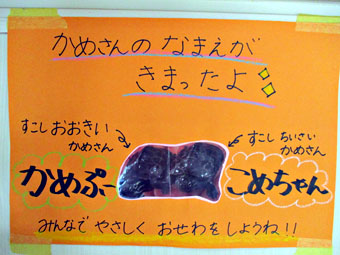 かめさんの なまえが
きまったよ
すこし おおきい
かめさん
かめぷー
すこし ちいさい
かめさん
こめちゃん
みんなで やさしく おせわを しようね!!